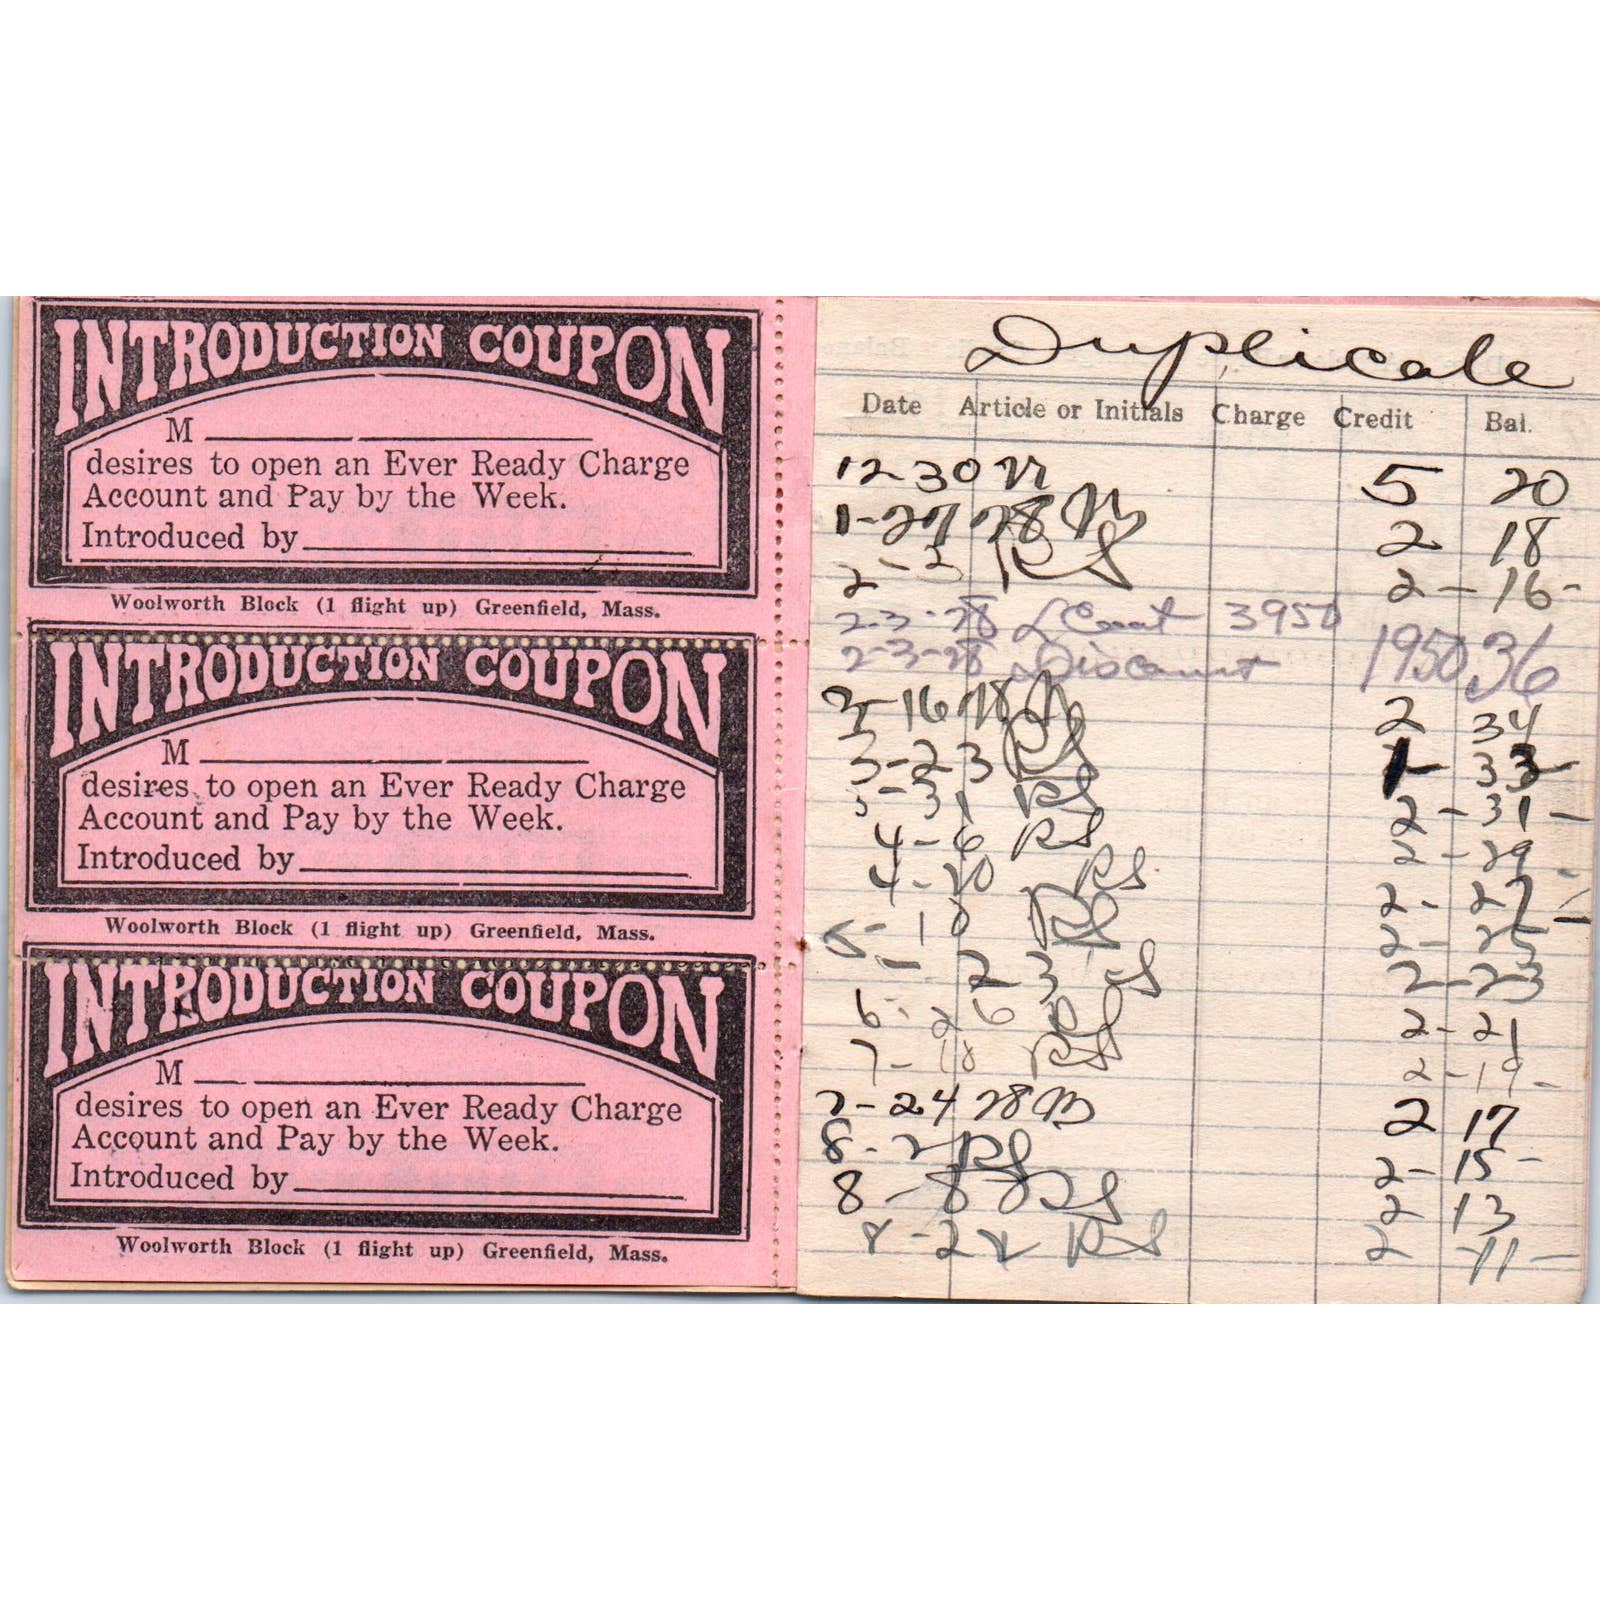 INTRODUCTION COUPON
M
desires to open an Ever Ready Charge
Account and Pay by the Week.
Introduced by
Woolworth Block (1 flight up) Greenfield, Mass.
INTRODUCTION COUPON
M
desires to open an Ever Ready Charge
Account and Pay by the Week.
Introduced by
Woolworth Block (1 flight up) Greenfield, Mass.
INTRODUCTION COUPON
M
desires to open an Ever Ready Charge
Account and Pay by the Week.
Introduced by
Woolworth Block (1 flight up) Greenfield, Mass.
Duplicate
Date Article or Initials Charge Credit Bal.
12-30 5 20
1-27 28 2 18
2-2 RS 2-16-
2-3-28 Coat 3950
2-3-28 Discount 1950 36
3-16 28 2 34
3-23 RS 1- 33-
3-31 RS 2-31-
4-6 RS 2-29-
4-20 RS 2-27-
5-10 RS 2-25
5-23 RS 2-23
6-26 RS 2-21
7-18 RS 2-19-
7-24 28 M 2 17
8-2 RS 2-15-
8-8 RS 2 13
8-22 RS 2 11-